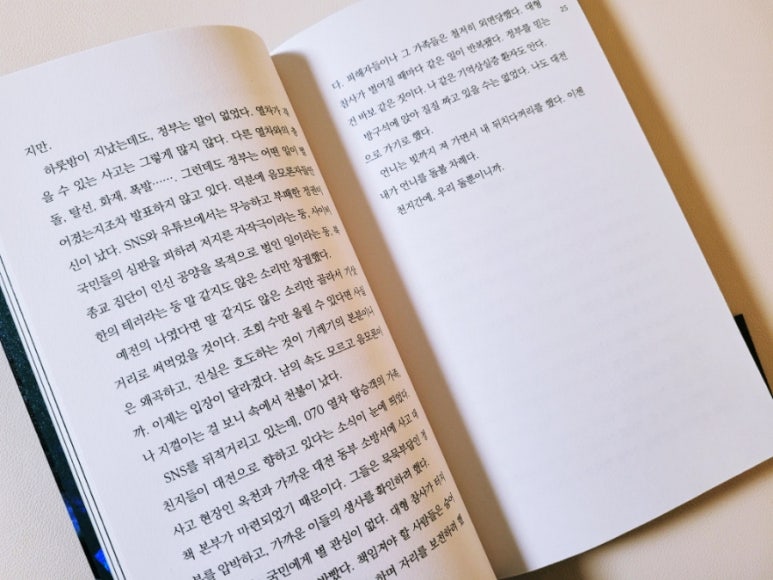 지만.
하룻밤이 지났는데도, 정부는 말이 없었다. 열차가 겪
을 수 있는 사고는 그렇게 많지 않다. 다른 열차와의 충
돌, 탈선, 화재, 폭발……. 그런데도 정부는 어떤 일이 벌
어졌는지조차 발표하지 않고 있다. 덕분에 음모론자들만
신이 났다. SNS와 유튜브에서는 무능하고 부패한 정권이
국민들의 심판을 피하려 저지른 자작극이라는 둥, 사이비
종교 집단이 인신 공양을 목적으로 벌인 일이라는 둥, 북
한의 테러라는 둥 말 같지도 않은 소리만 창궐했다.
예전의 나였다면 말 같지도 않은 소리만 골라서 기삿
거리로 써먹었을 것이다. 조회 수만 올릴 수 있다면 사실
은 왜곡하고, 진실은 호도하는 것이 기레기의 본분이니
까. 이제는 입장이 달라졌다. 남의 속도 모르고 음모론이
나 지껄이는 걸 보니 속에서 천불이 났다.
SNS를 뒤적거리고 있는데, 070 열차 탑승객의 가족,
친지들이 대전으로 향하고 있다는 소식이 눈에 띄었다.
사고 현장인 옥천과 가까운 대전 동부 소방서에 사고 대
책 본부가 마련되었기 때문이다. 그들은 묵묵부답인 정
부를 압박하고, 가까운 이들의 생사를 확인하려 했다.
국민에게 별 관심이 없다. 대형 참사가 터지
바빴다. 책임져야 할 사람들은 숨어
하며 자리를 보전하려
25
다. 피해자들이나 그 가족들은 철저히 외면당했다. 대형
참사가 벌어질 때마다 같은 일이 반복됐다. 정부를 믿는
건 바보 같은 짓이다. 나 같은 기억상실증 환자도 안다.
방구석에 앉아 질질 짜고 있을 수는 없었다. 나도 대전
으로 가기로 했다.
언니는 빚까지 져 가면서 내 뒤치다꺼리를 했다. 이젠
내가 언니를 돌볼 차례다.
천지간에, 우리 둘뿐이니까.